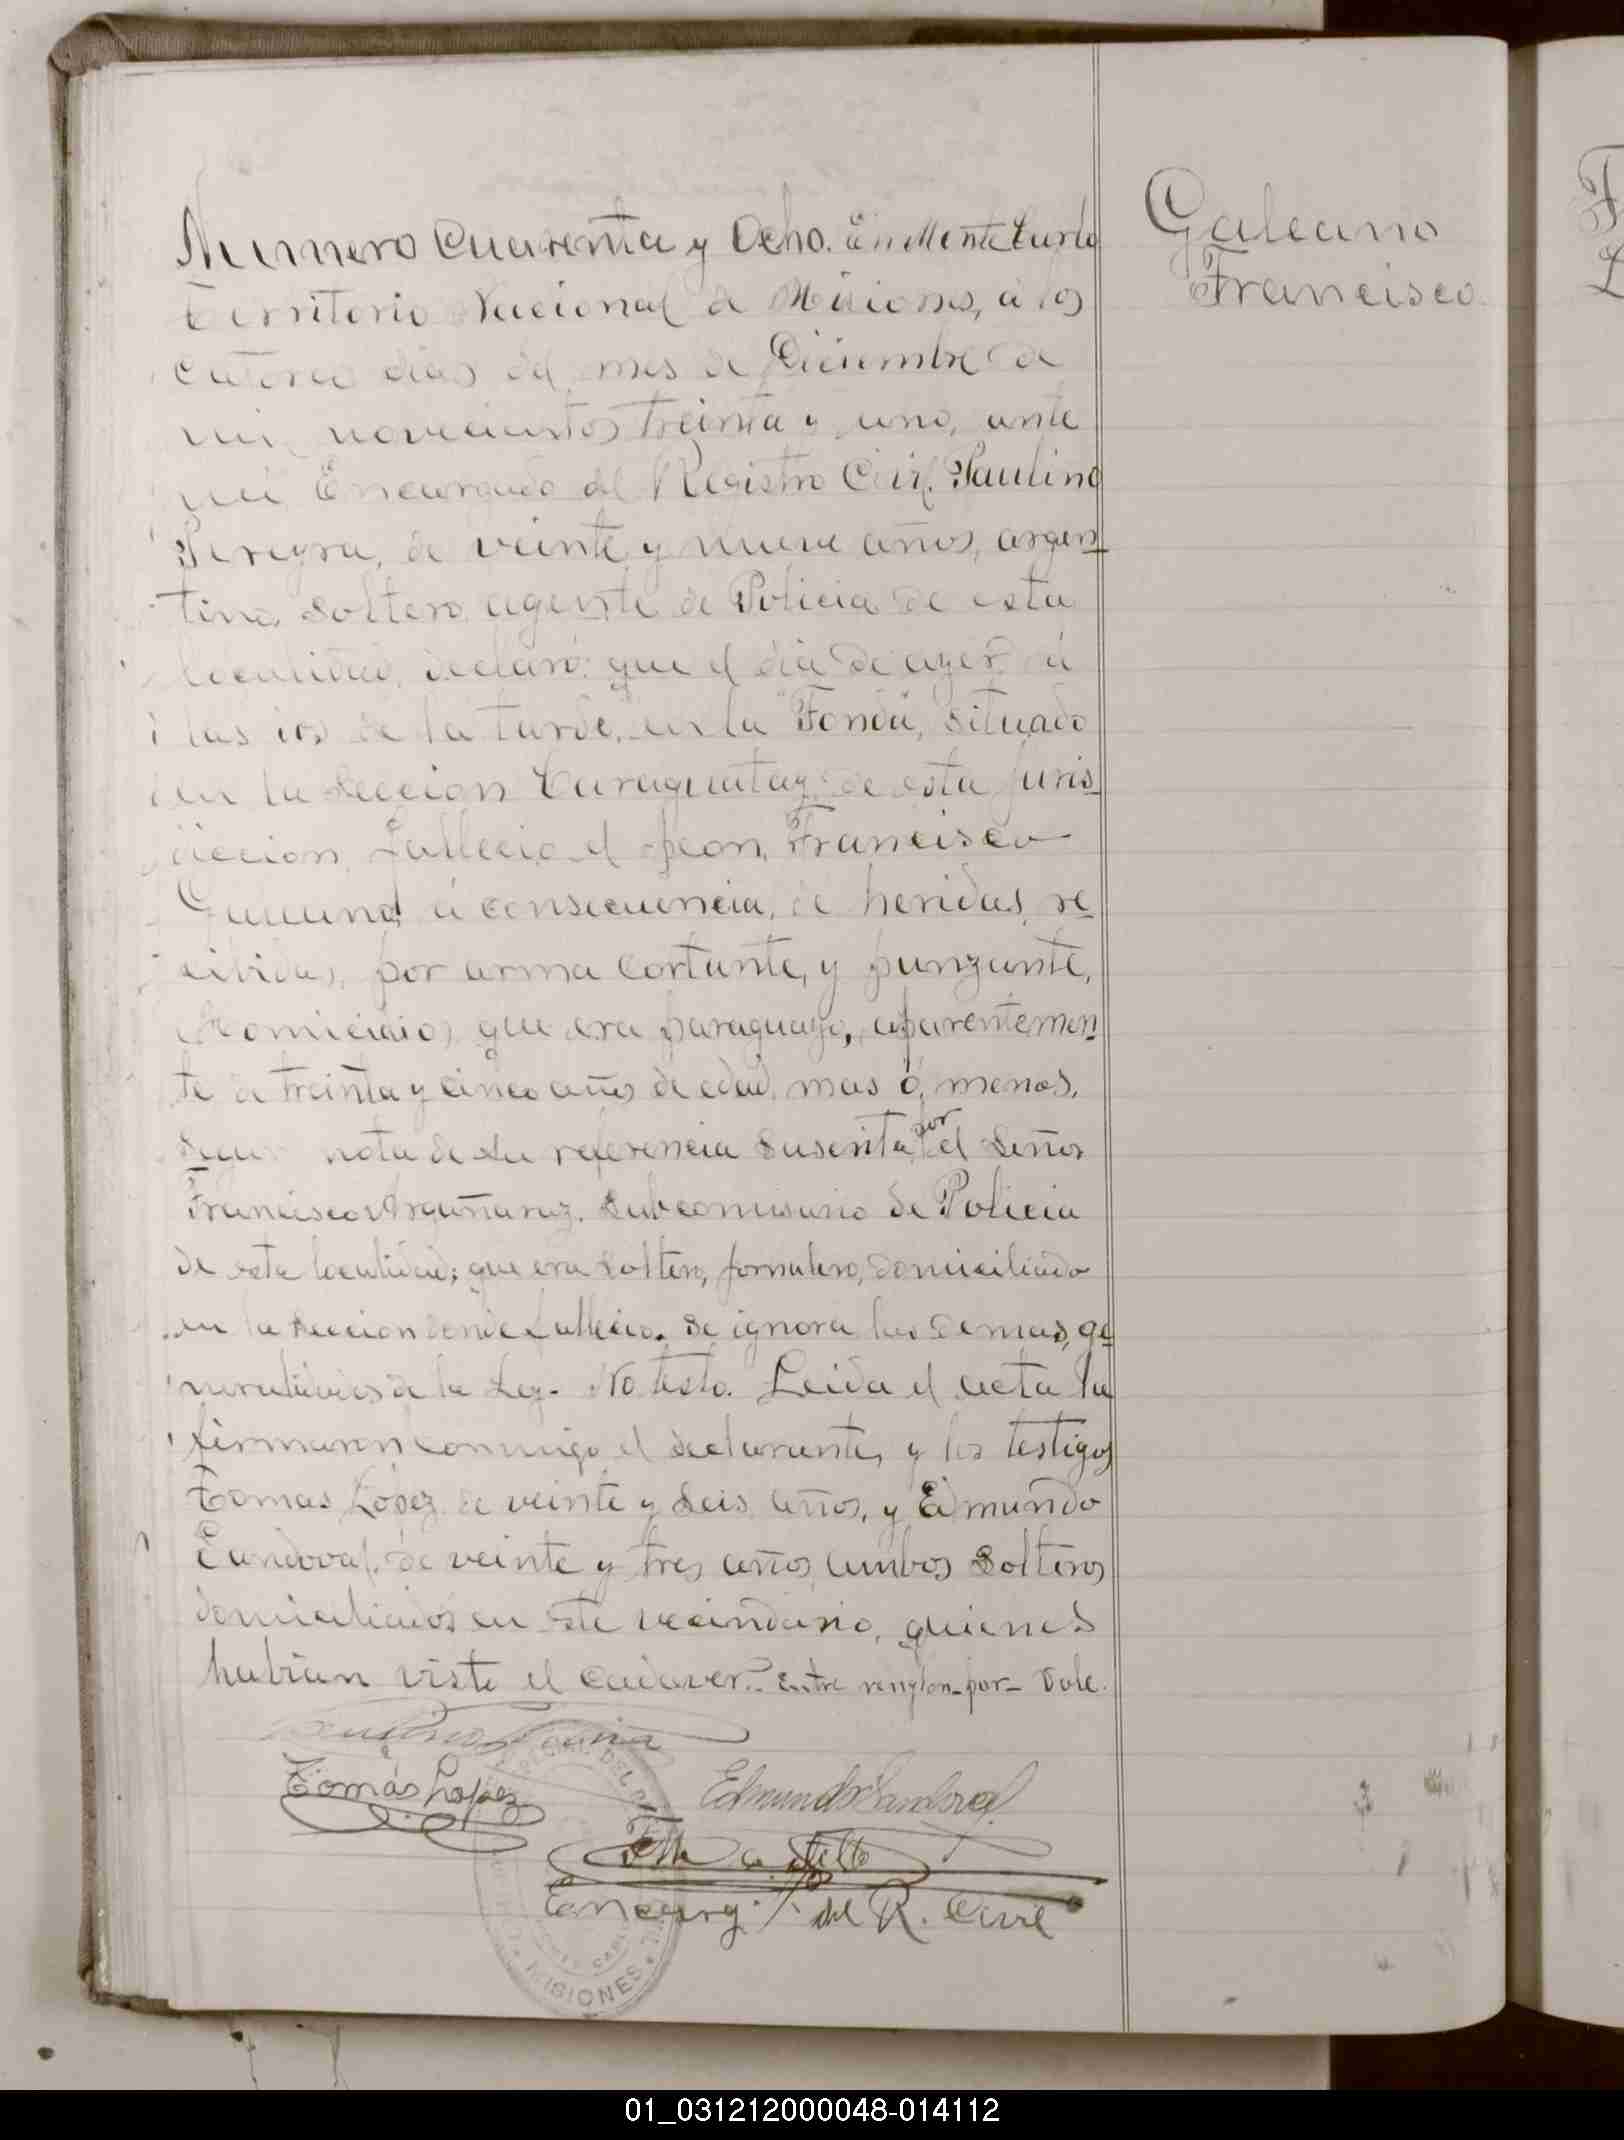 Galeano
Francisco
Numero Cuarenta y Ocho. En Monte Carlo
Territorio Nacional de Misiones, á los
catorce dias del mes de Diciembre de
mil novecientos treinta y uno, ante
mi Encargado del Registro Civil, Paulino
Pereyra, de veinte y nueve años, argen
tino, soltero, agente de Policia de esta
localidad, declaró: que el dia de ayer á
las dos de la tarde, en la "Fonda", situado
en la seccion Caraguatay de esta juris
diccion fallecio el peon, Francisco
Galeano, á consecuencia, de heridas, re
cibidas, por arma cortante, y punzante,
Homicidio, que era paraguayo, aparentemen
te de treinta y cinco años de edad, mas ó menos,
segun nota de su referencia suscrita por el Señor
Francisco Argañaraz, Subcomisario de Policia
de esta localidad; que era soltero, jornalero, domiciliado
en la seccion donde fallecio. Se ignora las demas, ge
neralidades de la Ley. No testo. Leida el acta la
firmaron conmigo el declarante, y los testigos
Tomas López de veinte y seis años, y Edmundo
Sandoval, de veinte y tres años, ambos solteros
domiciliados en este vecindario, quienes
habian visto el cadaver.- Entre renglon-por- Vale.
Tomás Lopez
Edmundo Sandoval
Encarg. del R. Civil
MISIONES
01_031212000048-014112